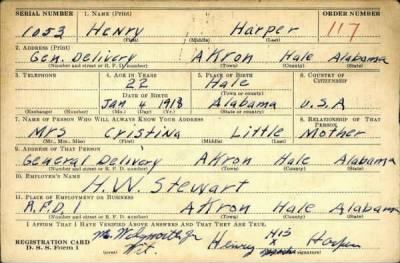 SERIAL NUMBER 1. NAME (Print) ORDER NUMBER
1053 Henry Harper 117
(First) (Middle) (Last)
2. ADDRESS (Print)
Gen. Delivery Akron Hale Alabama
(Number and street or R. F. D. number) (Town) (County) (State)
3. TELEPHONE 4. AGE IN YEARS 5. PLACE OF BIRTH 6. COUNTRY OF CITIZENSHIP
22 Hale
DATE OF BIRTH (Town or county)
Jan 4 1918 Alabama U.S.A
(Exchange) (Number) (Mo.) (Day) (Yr.) (State or country)
7. NAME OF PERSON WHO WILL ALWAYS KNOW YOUR ADDRESS 8. RELATIONSHIP OF THAT PERSON
Mrs Cristina Little Mother
(Mr., Mrs., Miss) (First) (Middle) (Last)
9. ADDRESS OF THAT PERSON
General Delivery Akron Hale Alabama
(Number and street or R. F. D. number) (Town) (County) (State)
10. EMPLOYER'S NAME
H. W. Stewart
11. PLACE OF EMPLOYMENT OR BUSINESS
R.F.D. 1 Akron Hale Alabama
(Number and street or R. F. D. number) (Town) (County) (State)
I AFFIRM THAT I HAVE VERIFIED ABOVE ANSWERS AND THAT THEY ARE TRUE.
REGISTRATION CARD
D. S. S. Form 1
(over) Wit. Henry His X Harper